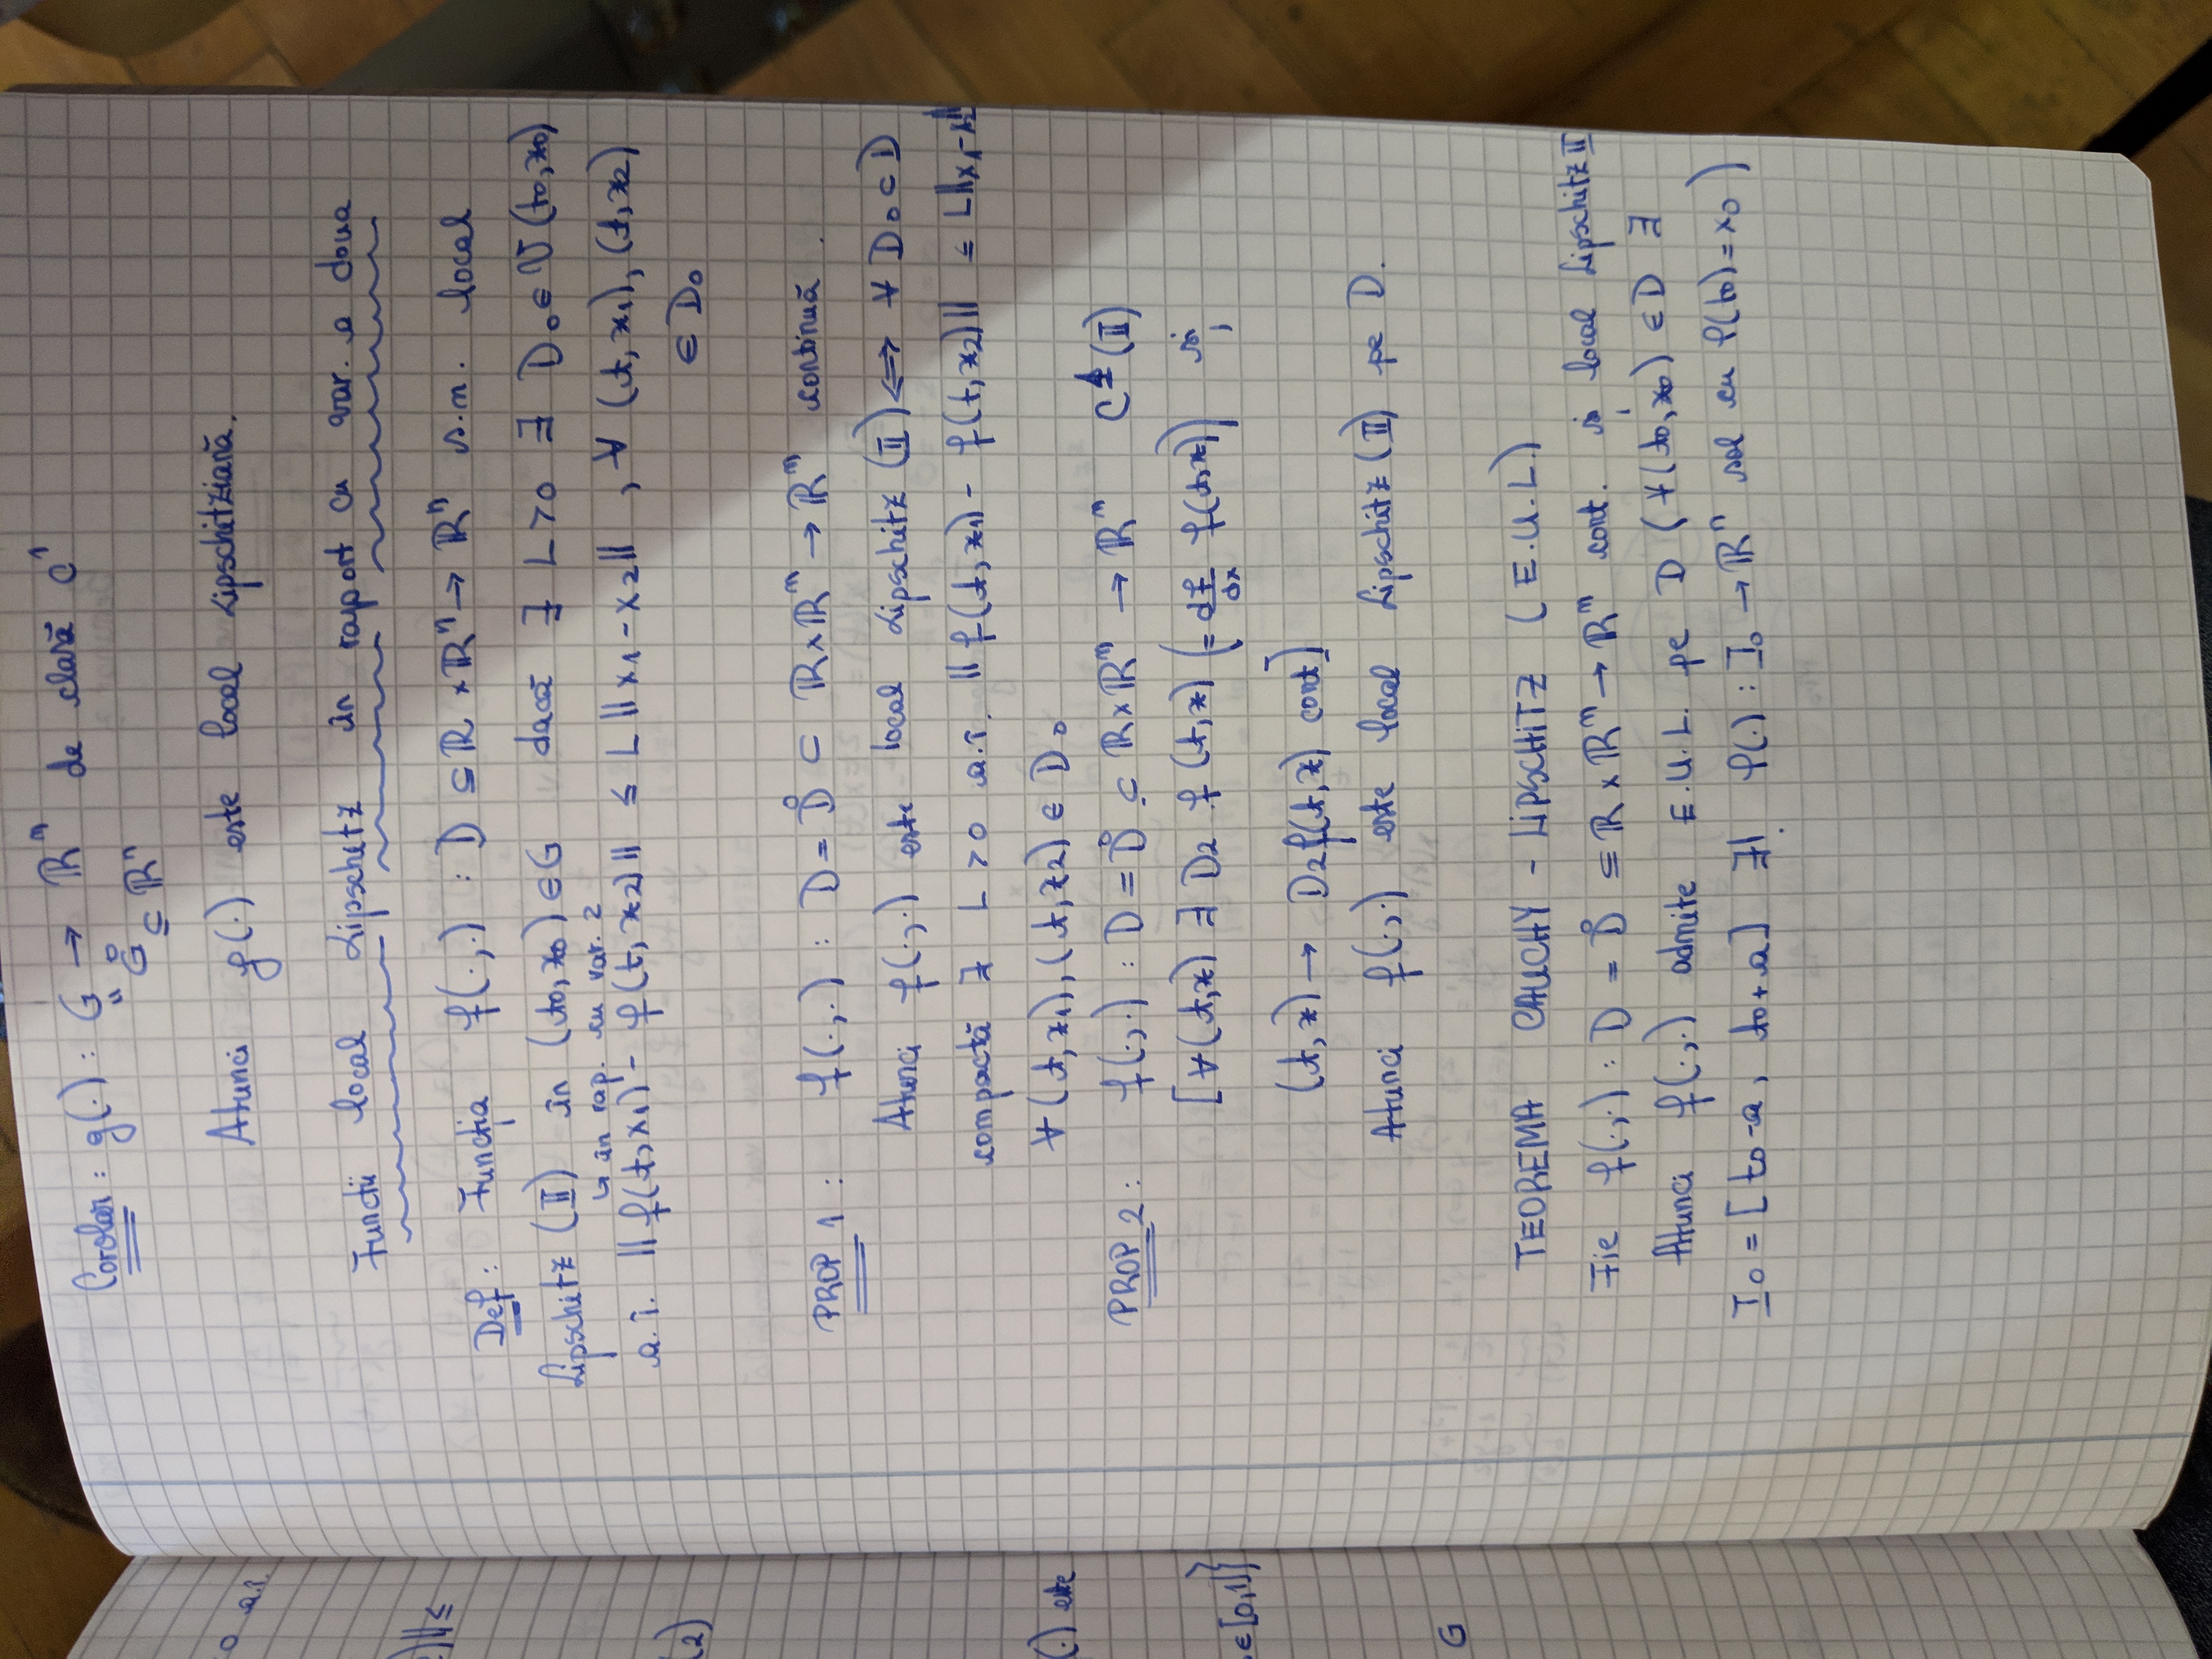 Corolar : g(·) : G → ℝⁿ de clasă C¹
" G̊ ⊆ ℝⁿ
Atunci g(·) este local Lipschitziană.
Functii local Lipschitz în raport cu var. a doua
Def : Funcția f(·,·) : D ⊆ ℝ × ℝⁿ → ℝⁿ s.n. local
Lipschitz (II) în (t0, x0) ∈ G dacă ∃ L > 0 ∃ D0 ∈ V(t0, x0)
↳ în rap. cu var. 2
a. î. || f(t, x1) - f(t, x2) || ≤ L || x1 - x2 || , ∀ (t, x1), (t, x2)
∈ D0
PROP 1 : f(·,·) : D = D̊ ⊂ ℝ × ℝⁿ → ℝⁿ continuă .
Atunci f(·,·) este local Lipschitz (II) ⟺ ∀ D0 ⊂ D
compactă ∃ L > 0 a.î. || f(t, x1) - f(t, x2) || ≤ L || x1 - x2 ||
∀ (t, x1), (t, x2) ∈ D0
PROP 2 : f(·,·) : D = D̊ ⊆ ℝ × ℝⁿ → ℝⁿ C¹ (II)
[ ∀ (t, x) ∃ D2 f (t, x) ( = df/dx f(t, x) ) și
(t, x) → D2 f(t, x) cont ]
Atunci f(·,·) este local Lipschitz (II) pe D.
TEOREMA CAUCHY - LIPSCHITZ ( E.U.L.)
Fie f(·,·) : D = D̊ ⊆ ℝ × ℝⁿ → ℝⁿ cont. și local Lipschitz II
Atunci f(·,·) admite E.U.L. pe D ( ∀ (t0, x0) ∈ D ∃
I0 = [ t0 - a , t0 + a ] ∃! φ(·) : I0 → ℝⁿ sol cu φ(t0) = x0 )
o a.î.
)|| ≤
(2)
(·) este
∈ [0,1]}
G